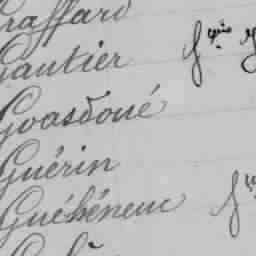 Graffard
Gautier
Goasdoué
Guérin
Guéhéneuc